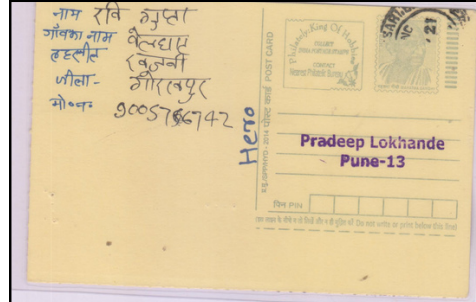 नाम रवि गुप्ता
गाँवका नाम बेलघाट
तहसील खजनी
जीला- गोरखपुर
मो०न०
Hero
पोस्ट कार्ड POST CARD
Philately, King Of Hobbies
COLLECT
CONTACT
Nearest Philatelic Bureau
21
Pradeep Lokhande
Pune-13
पिन PIN